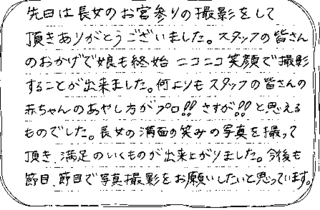 先日は長女のお宮参りの撮影をして
頂きありがとうございました。スタッフの皆さん
のおかげで娘も終始ニコニコ笑顔で撮影
することが出来ました。何よりもスタッフの皆さんの
赤ちゃんのあやし方がプロ!!さすが!!と思える
ものでした。長女の満面の笑みの写真を撮って
頂き、満足のいくものが出来上がりました。今後も
節目、節目で写真撮影をお願いしたいと思っています。